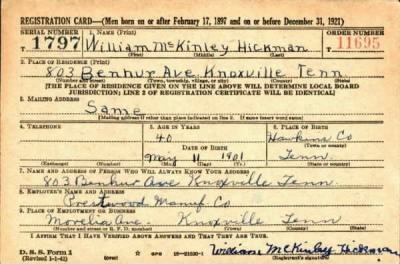 REGISTRATION CARD—(Men born on or after February 17, 1897 and on or before December 31, 1921)
SERIAL NUMBER 1. NAME (Print) ORDER NUMBER
T 1797 William McKinley Hickman T 11695
(First) (Middle) (Last)
2. PLACE OF RESIDENCE (Print)
803 Benhur Ave Knoxville Tenn.
(Number and street) (Town, township, village, or city) (County) (State)
[THE PLACE OF RESIDENCE GIVEN ON THE LINE ABOVE WILL DETERMINE LOCAL BOARD
JURISDICTION; LINE 2 OF REGISTRATION CERTIFICATE WILL BE IDENTICAL]
3. MAILING ADDRESS
Same
[Mailing address if other than place indicated on line 2. If same insert word same]
4. TELEPHONE 5. AGE IN YEARS 6. PLACE OF BIRTH
40 Hawkins Co
DATE OF BIRTH (Town or county)
May 11 1901 Tenn.
(Exchange) (Number) (Mo.) (Day) (Yr.) (State or country)
7. NAME AND ADDRESS OF PERSON WHO WILL ALWAYS KNOW YOUR ADDRESS
803 Benhur Ave Knoxville Tenn.
8. EMPLOYER'S NAME AND ADDRESS
Prestwood Manuf. Co
9. PLACE OF EMPLOYMENT OR BUSINESS
Morelia Ave. Knoxville Tenn
(Number and street or R. F. D. number) (Town) (County) (State)
I AFFIRM THAT I HAVE VERIFIED ABOVE ANSWERS AND THAT THEY ARE TRUE.
D. S. S. Form 1
(Revised 1-1-42) (over) GPO 16—21630-1 William McKinley Hickman
(Registrant's signature)